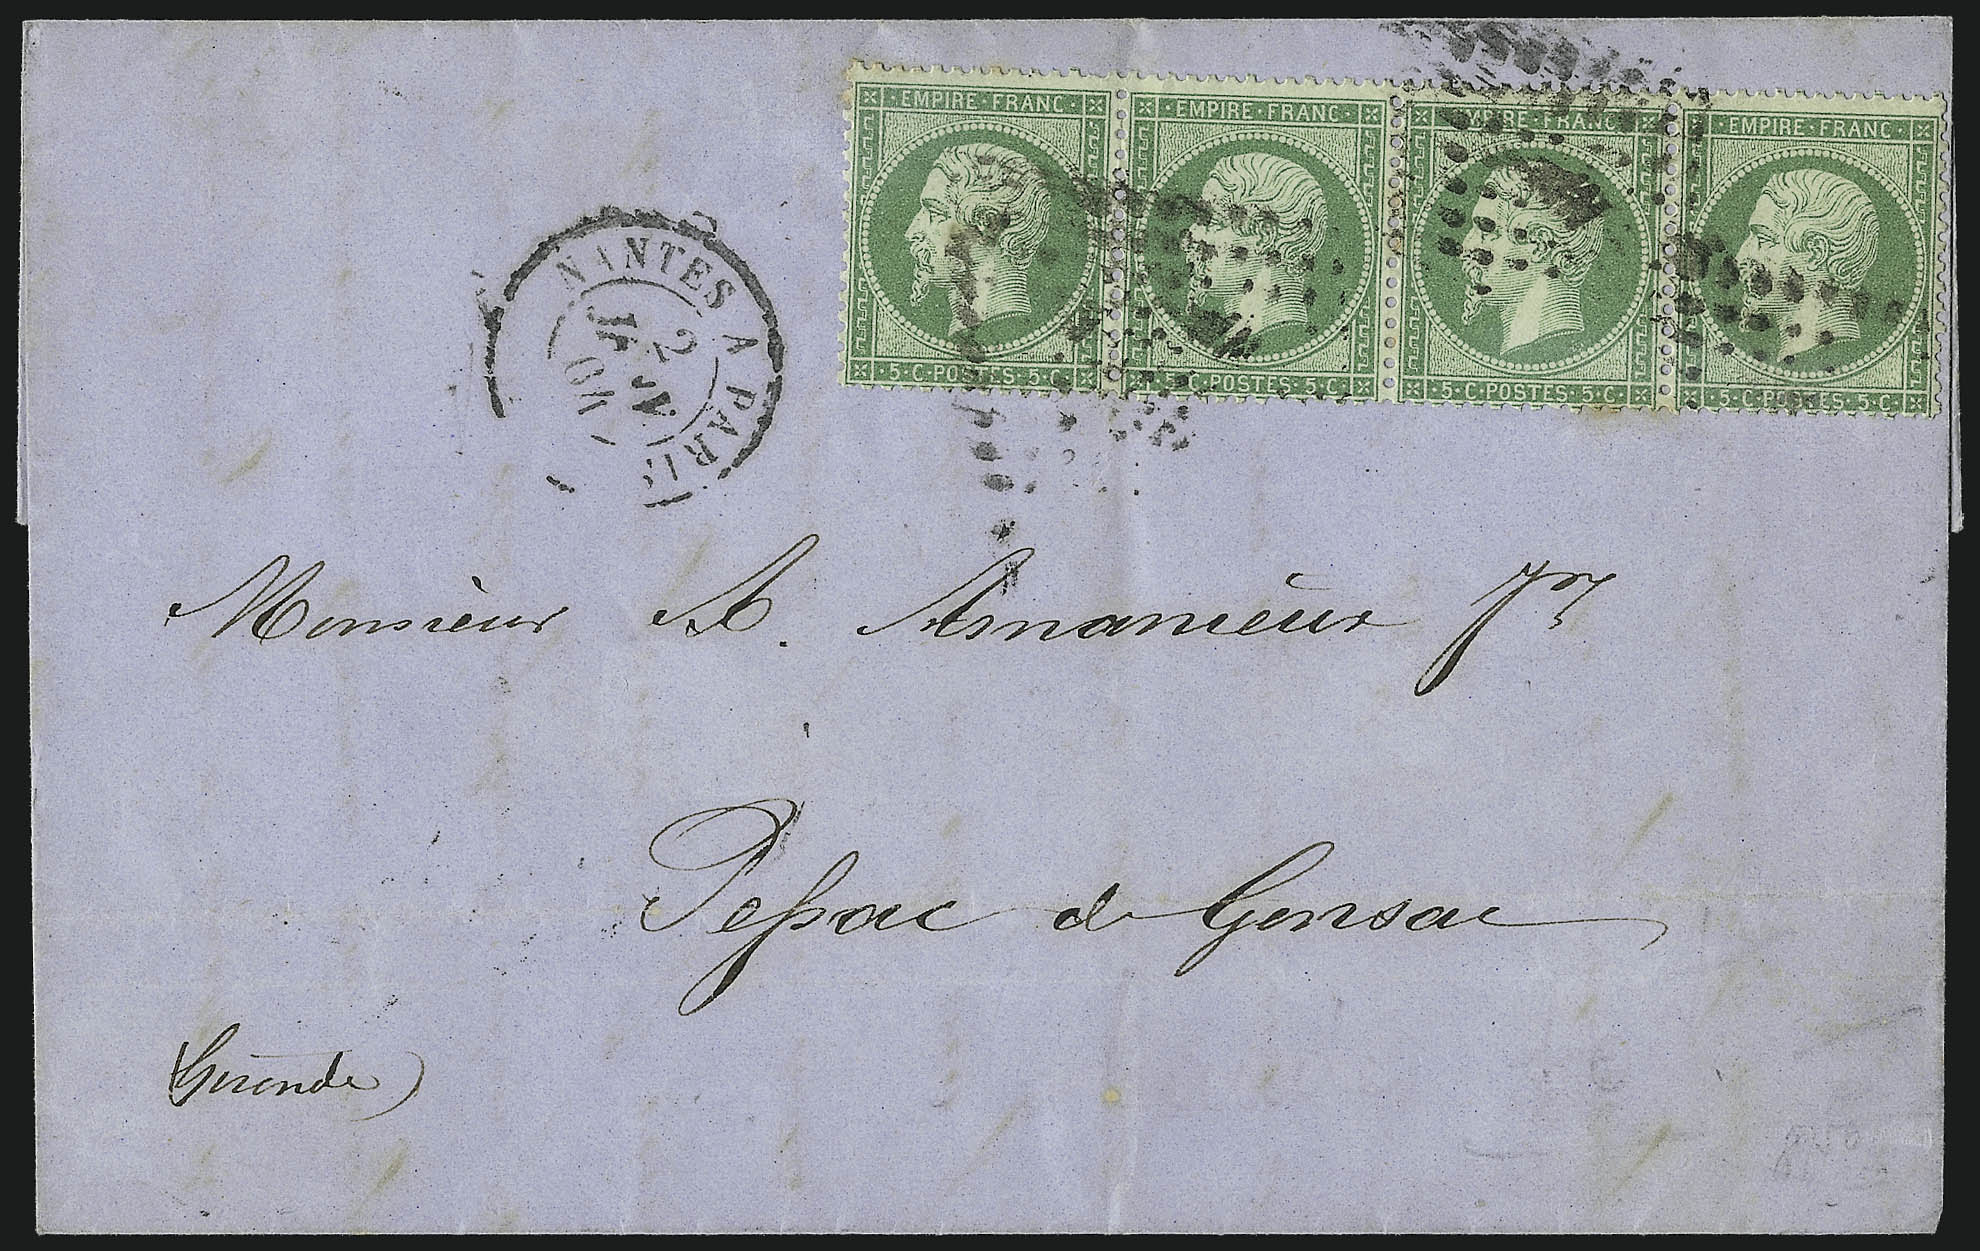 EMPIRE·FRANC· EMPIRE·FRANC· EMPIRE·FRANC· EMPIRE·FRANC·
·5·C·POSTES·5·C· 5·C·POSTES·5·C· ·5·C·POSTES·5·C· ·5·C·POSTES·5·C·
NANTES A PARIS
2
Monsieur A. Amanieux Jne
Pessac de Gensac
(Gironde)